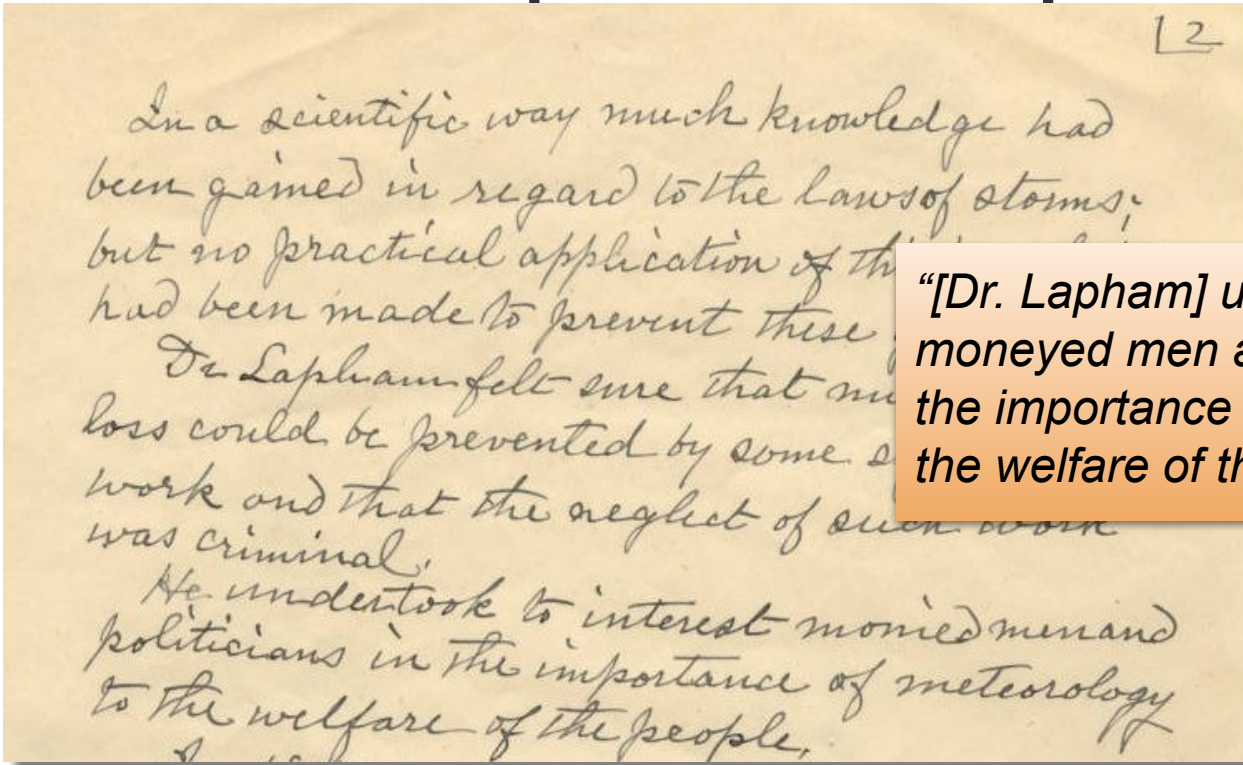 2
In a scientific way much knowledge had
been gained in regard to the laws of storms;
but no practical application of
had been made to prevent these
Dr Lapham felt sure that
loss could be prevented by some
work and that the neglect of such work
was criminal.
He undertook to interest monied men and
politicians in the importance of meteorology
to the welfare of the people.
“[Dr. Lapham]
moneyed men
the importance
the welfare of